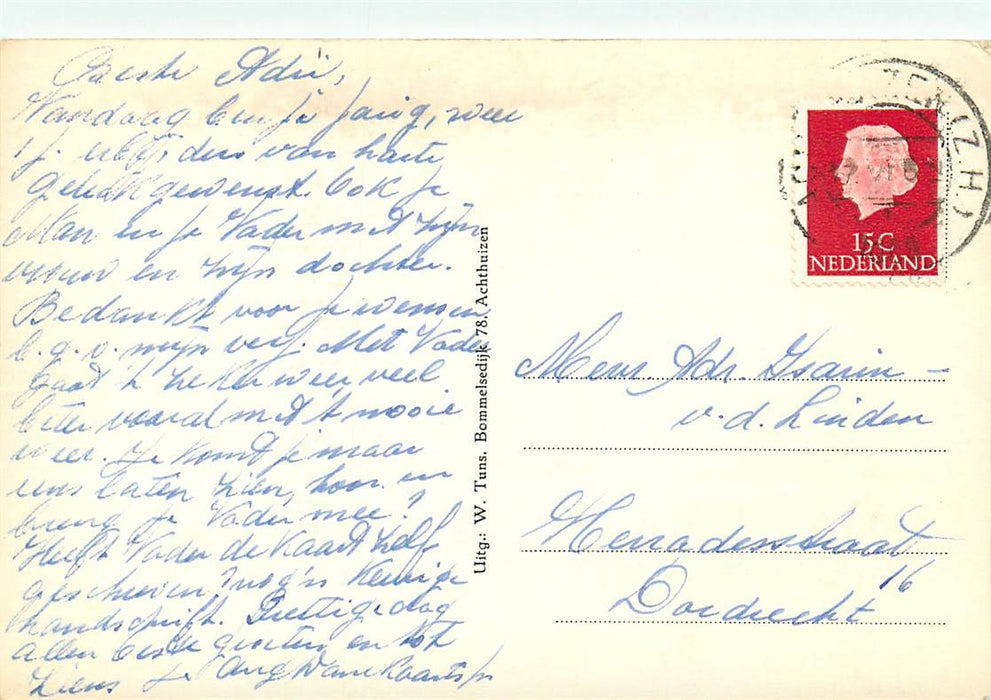 Beste Adri,
Vandaag ben je jarig, wees
van harte
geluk gewenst. Ook je
Man en je Vader met zijn
vrouw en zijn dochter.
Bedankt voor je wensen
b.g.v. mijn verj. Met Vader
gaat 't zeker weer veel
beter vooral met 't mooie
weer. Je komt je maar
eens laten zien, hoor. en
breng je Vader mee?
Heeft Vader de kaart zelf
geschreven, nog 'n keurige
handschrift. Prettige dag
allen beste groeten en tot
ziens je
Uitg.: W. Tuns, Bommelsedijk 78, Achthuizen
15 C
NEDERLAND
Mevr. Adr. Isarin -
v.d. Linden
16
Dordrecht